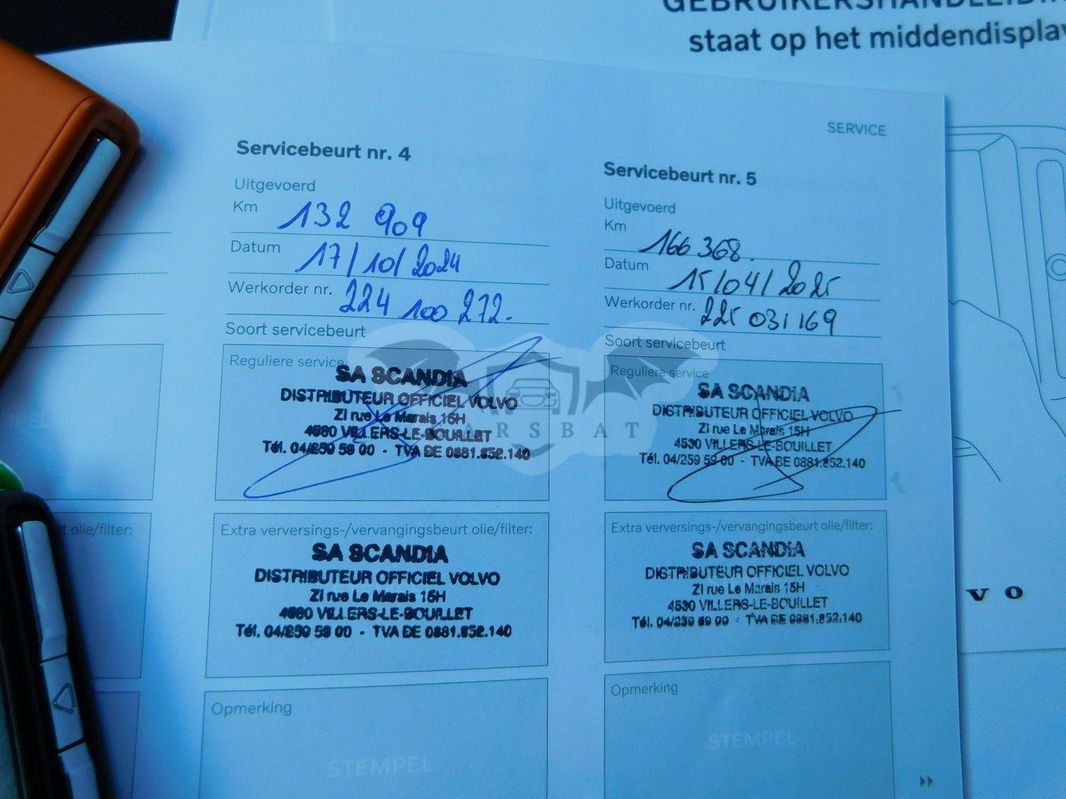 GEBRUIKERSHANDLEIDIN
staat op het middendisplay
SERVICE
Servicebeurt nr. 4
Uitgevoerd
Km 132 909
Datum 17/10/2024
Werkorder nr. 224 100 272.
Soort servicebeurt
Reguliere service
SA SCANDIA
DISTRIBUTEUR OFFICIEL VOLVO
ZI rue Le Marais 15H
VILLERS-LE-BOUILLET
Tél. 04/259 59 00 - TVA BE 0881.852.140
Extra verversings-/vervangingsbeurt olie/filter:
SA SCANDIA
DISTRIBUTEUR OFFICIEL VOLVO
ZI rue Le Marais 15H
VILLERS-LE-BOUILLET
Tél. 04/259 59 00 - TVA BE 0881.852.140
Opmerking
STEMPEL
Servicebeurt nr. 5
Uitgevoerd
Km 166 368.
Datum 15/04/2025
Werkorder nr. 225 031 169
Soort servicebeurt
Reguliere service
SA SCANDIA
DISTRIBUTEUR OFFICIEL VOLVO
ZI rue Le Marais 15H
4530 VILLERS-LE-BOUILLET
Tél. 04/259 59 00 - TVA BE 0881.852.140
Extra verversings-/vervangingsbeurt olie/filter:
SA SCANDIA
DISTRIBUTEUR OFFICIEL VOLVO
ZI rue Le Marais 15H
4530 VILLERS-LE-BOUILLET
Tél. 04/259 59 00 - TVA BE 0881.852.140
Opmerking
STEMPEL
olie/filter:
ARSBAT
VO